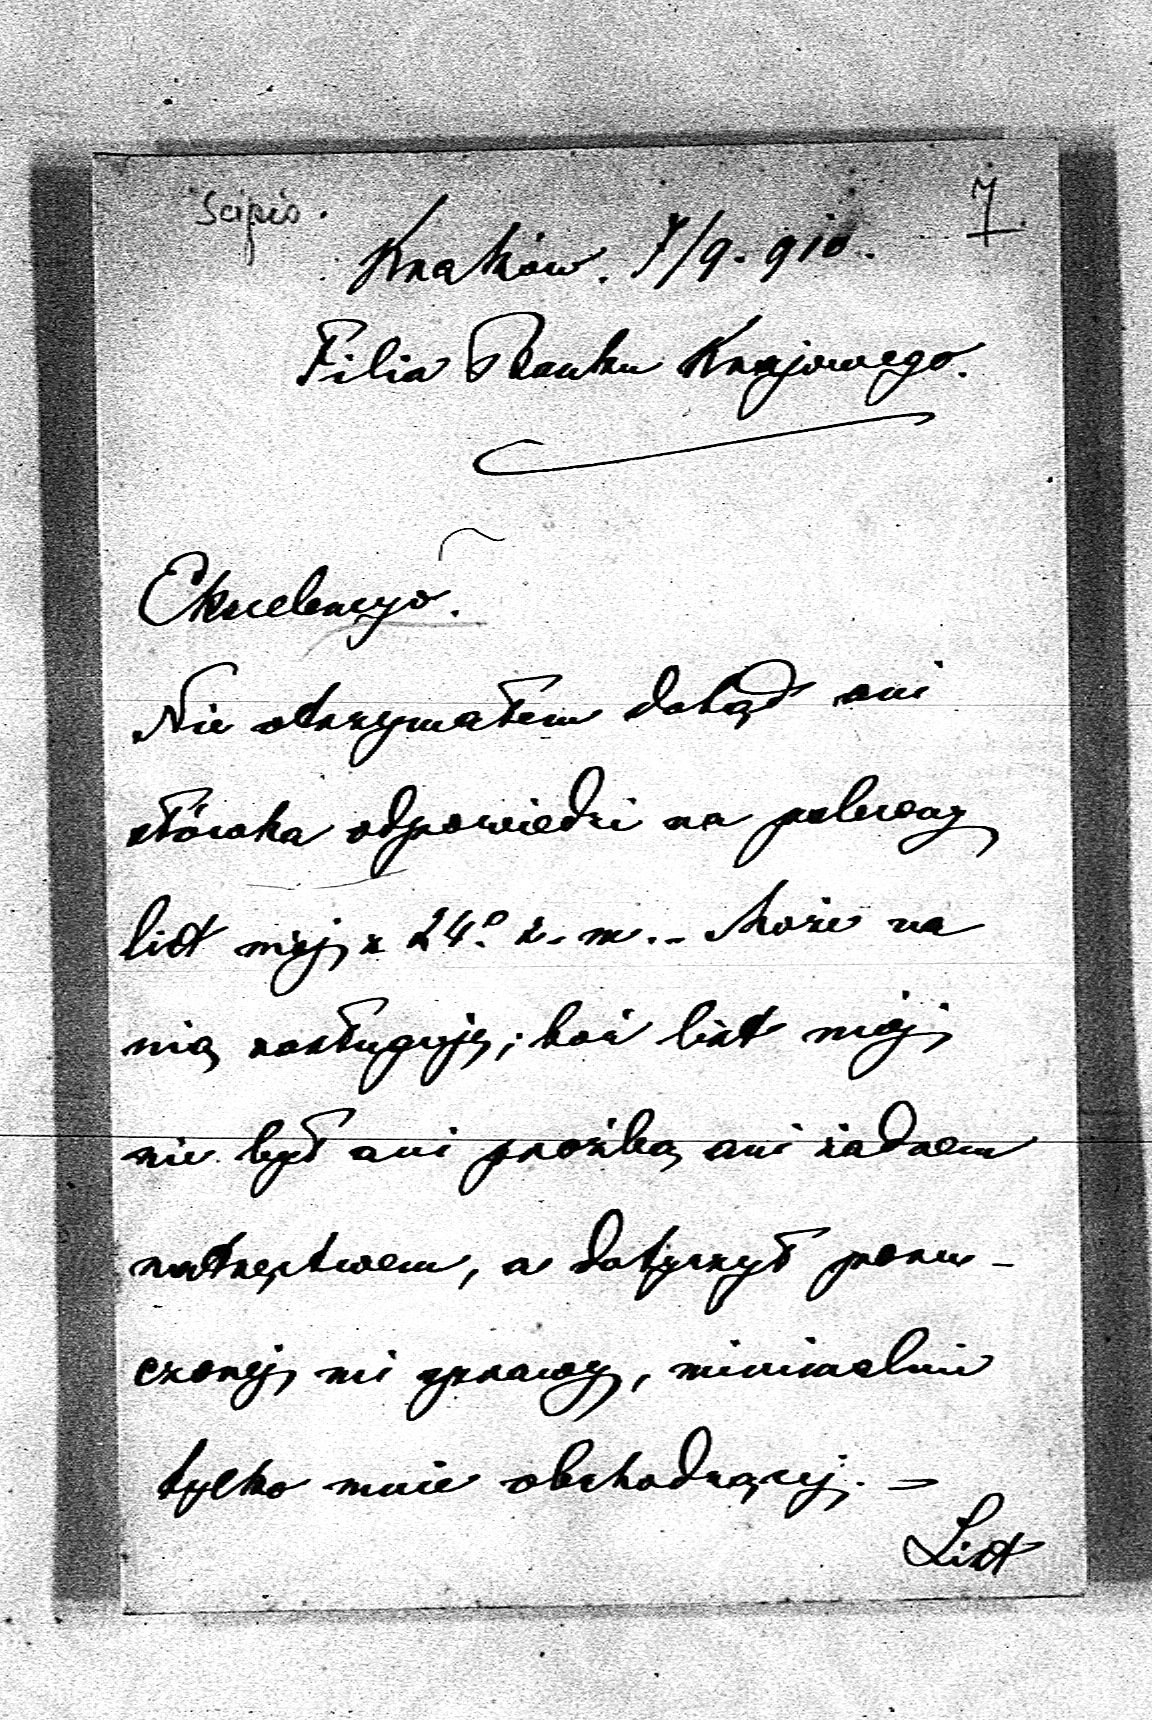 Scipio.
7
Kraków. 7/9. 910.
Filia Banku Krajowego.
Ekscelencyo.
Nie otrzymałem dotąd ani
słówka odpowiedzi na polecony
list mój z 24.º z. m. - Może na
nią zasługuję; boć list mój
nie był ani prośbą ani żadnem
natręctwem, a dotyczył poru-
czonej mi sprawy, minimalnie
tylko mnie obchodzącej. -
List